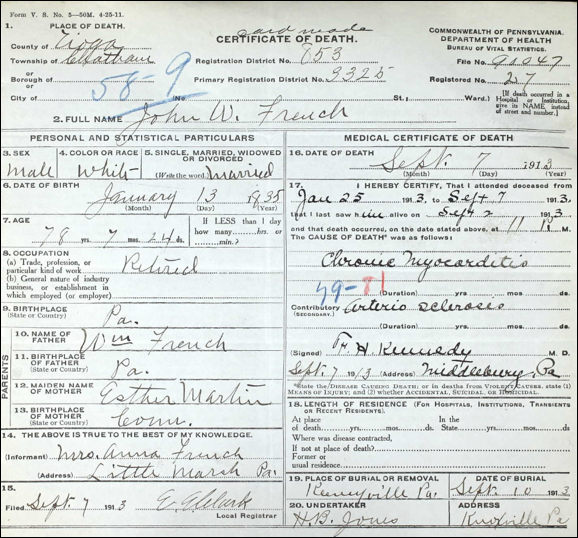 Form V. S. No. 5—50M. 4-25-11.
card made
1. PLACE OF DEATH.
CERTIFICATE OF DEATH.
COMMONWEALTH OF PENNSYLVANIA.
DEPARTMENT OF HEALTH
BUREAU OF VITAL STATISTICS.
County of Tioga
Township of Chatham
or
Borough of
or
City of
58-9
Registration District No. 853
Primary Registration District No. 3325
File No. 90047
Registered No. 27
No. St.; Ward.)
[If death occurred in a Hospital or Institution, give its NAME instead of street and number.]
2. FULL NAME John W. French
PERSONAL AND STATISTICAL PARTICULARS
3. SEX
Male
4. COLOR OR RACE
White
5. SINGLE, MARRIED, WIDOWED OR DIVORCED
(Write the word.) Married
6. DATE OF BIRTH
January 13 1835
(Month) (Day) (Year)
7. AGE
78 yrs. 7 mos. 24 ds.
If LESS than 1 day
how many......hrs. or
......min.?
8. OCCUPATION
(a) Trade, profession, or particular kind of work Retired
(b) General nature of industry business, or establishment in which employed (or employer)
9. BIRTHPLACE
(State or Country) Pa.
PARENTS
10. NAME OF FATHER Wm French
11. BIRTHPLACE OF FATHER
(State or Country) Pa.
12. MAIDEN NAME OF MOTHER Esther Martin
13. BIRTHPLACE OF MOTHER
(State or Country) Conn.
14. THE ABOVE IS TRUE TO THE BEST OF MY KNOWLEDGE.
(Informant) Mrs. Anna French
(Address) Little Marsh Pa.
15.
Filed Sept. 7 1913 E. E. Clark
Local Registrar
MEDICAL CERTIFICATE OF DEATH
16. DATE OF DEATH
Sept. 7 1913
(Month) (Day) (Year)
17. I HEREBY CERTIFY, That I attended deceased from
Jan 25 1913, to Sept 7 1913,
that I last saw him alive on Sept 2 1913
and that death occurred, on the date stated above, at 11 M.
The CAUSE OF DEATH* was as follows:
Chronic Myocarditis
79-81
(Duration) yrs. mos. ds.
Contributory Arterio sclerosis
(SECONDARY.)
(Duration) yrs. mos. ds.
(Signed) H. Kennedy M. D.
Sept. 7 1913 (Address) Middlebury, Pa
*State the DISEASE CAUSING DEATH; or in deaths from VIOLENT CAUSES, state (1) MEANS OF INJURY; and (2) whether ACCIDENTAL, SUICIDAL, OR HOMICIDAL.
18. LENGTH OF RESIDENCE (FOR HOSPITALS, INSTITUTIONS, TRANSIENTS OR RECENT RESIDENTS).
At place
of death......yrs......mos......ds.
In the
State......yrs......mos......ds.
Where was disease contracted,
If not at place of death?
Former or
usual residence.
19. PLACE OF BURIAL OR REMOVAL
Keeneyville Pa.
DATE OF BURIAL
Sept. 10 1913
20. UNDERTAKER
H. B. Jones
ADDRESS
Knoxville Pa